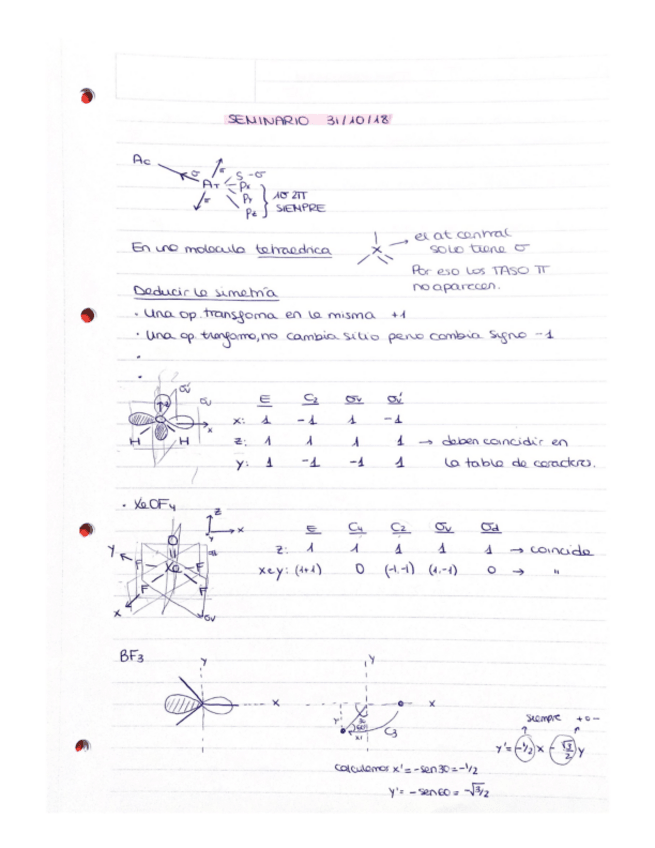 SEMINARIO 31/10/18
Ac
σ σ S - σ
AT Px
σ Py 1σ 2π
Pz SIEMPRE
En una molecula tetraedrica
x → el at central
solo tiene σ
Por eso los TASO π
no aparecen.
Deducir la simetría
· Una op. transforma en la misma +1
· Una op. transforma, no cambia sitio pero cambia signo -1
·
·
σv' σv
x
H H
E C2 σv σv'
x: 1 -1 1 -1
z: 1 1 1 1 → deben coincidir en
y: 1 -1 -1 1 la tabla de caracteres.
· XeOF4
z
x
y
O
Y
F Xe F
F F
X
σv
E C4 C2 σv σd
z: 1 1 1 1 1 → coincide
x e y: (1+1) 0 (-1,-1) (1,-1) 0 → "
BF3
y
x
y
x
y'
30
60
x'
C3
siempre + o -
y' = -1/2 x - √3/2 y
calculamos x' = -sen30 = -1/2
y' = -sen60 = -√3/2